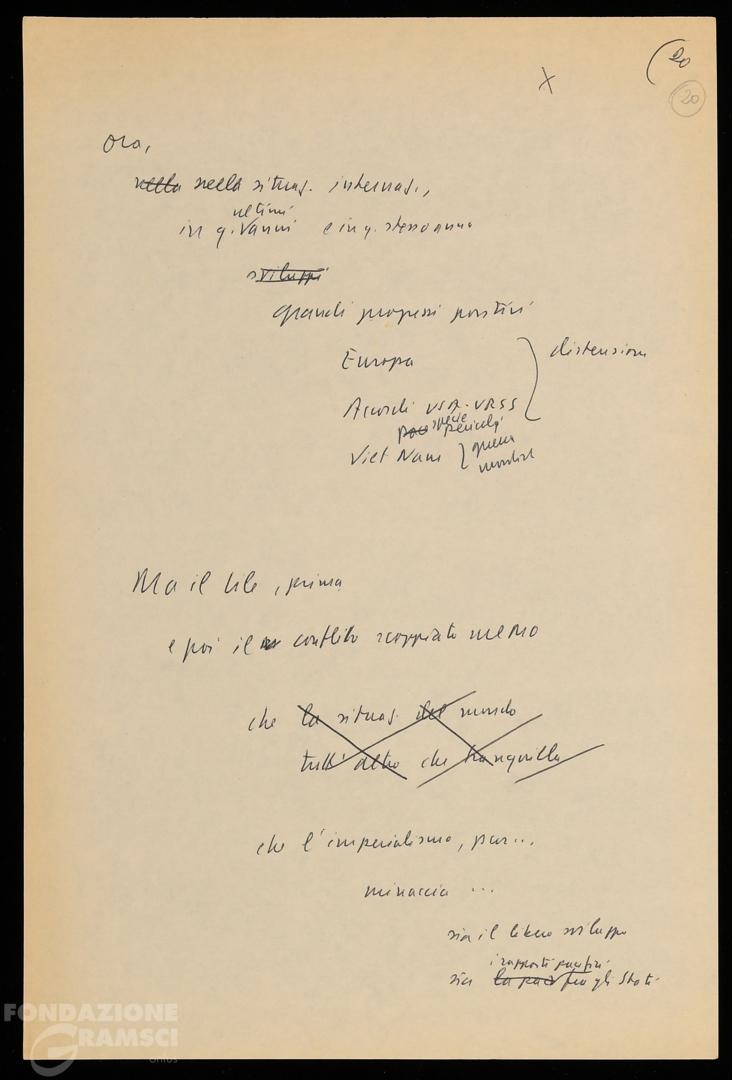 (20
20
X
Ora,
nella nella situaz. internaz.,
ultimi
in q. vanni e in q. stesso anno
sviluppi
grandi progressi positivi
Europa
distensione
Accordi USA-URSS
specie pericoli
Viet Nam guerra
mondiale
Ma il Cile, prima
e poi il conflitto scoppiato nel MO
che la situaz. del mondo
tutt'altro che tranquilla
che l'imperialismo, pur...
minaccia ...
sia il libero sviluppo
i rapporti pacifici
sia la pace fra gli Stati
FONDAZIONE
GRAMSCI
onlus